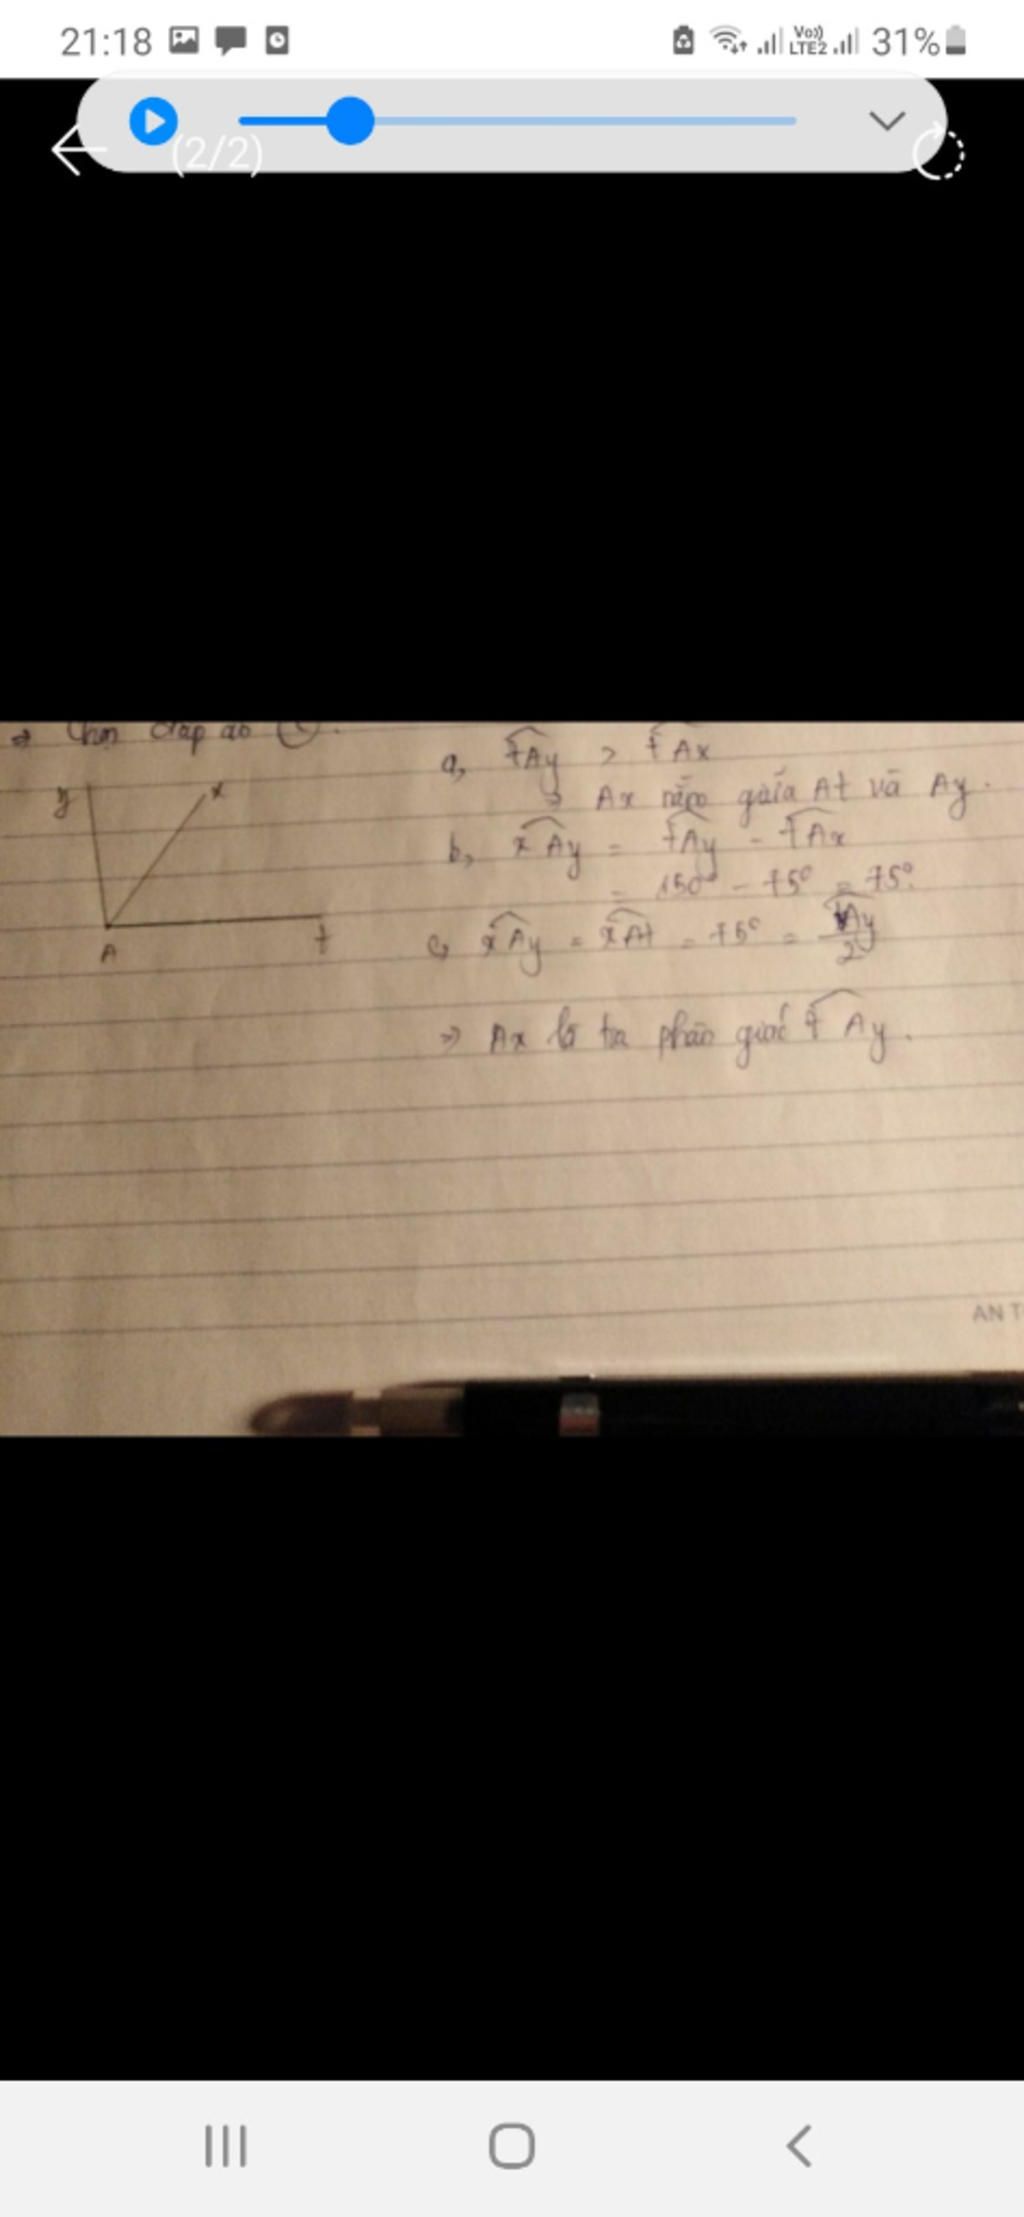 21:18 Vo)) LTE2 31%
(2/2)
⇒ Chọn đáp án
y x
A t
a, tAy > tAx
⇒ Ax nằm giữa At và Ay.
b, xAy = tAy - tAx
= 150° - 75° = 75°.
c, xAy = xAt = 75° = tAy/2
⇒ Ax là tia phân giác tAy.
AN T